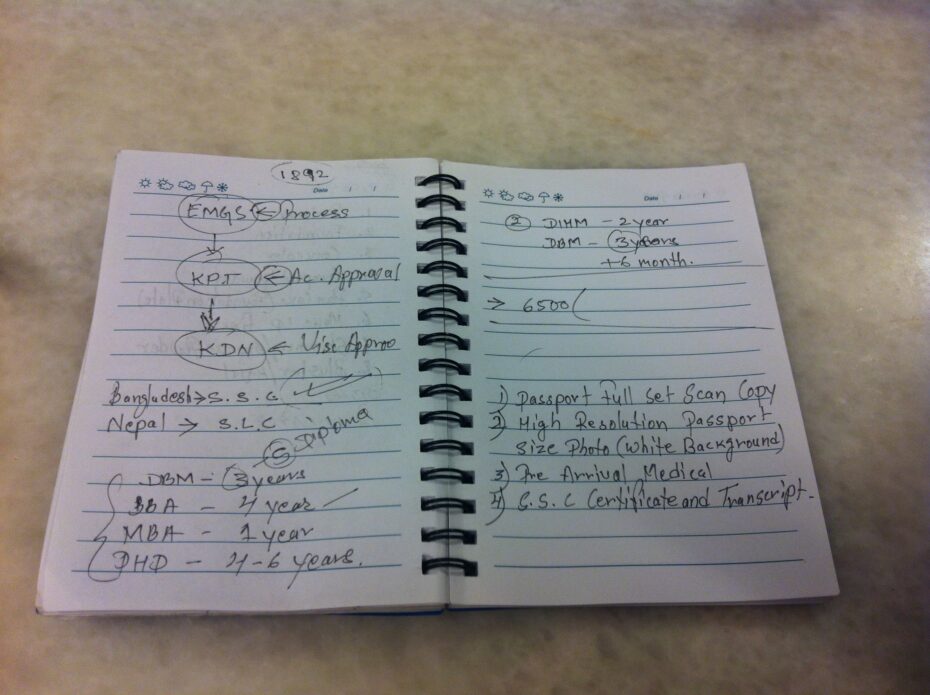 1892
Date / /
EMGS ← Process
KPT ← Ac. Approval
KDN ← Visa Approo
Bangladesh → S.S.C
Nepal → S.L.C
Diploma
DBM - 3 years
BBA - 4 year
MBA - 1 year
PHD - 4-6 years.
Date / /
DIHM - 2 year
DBM - 3 years
+6 month.
→ 6500
1) Passport Full Set Scan Copy
2) High Resolution Passport
Size Photo (White Background)
3) Pre Arrival Medical
4) S.S.C Certificate and Transcript.